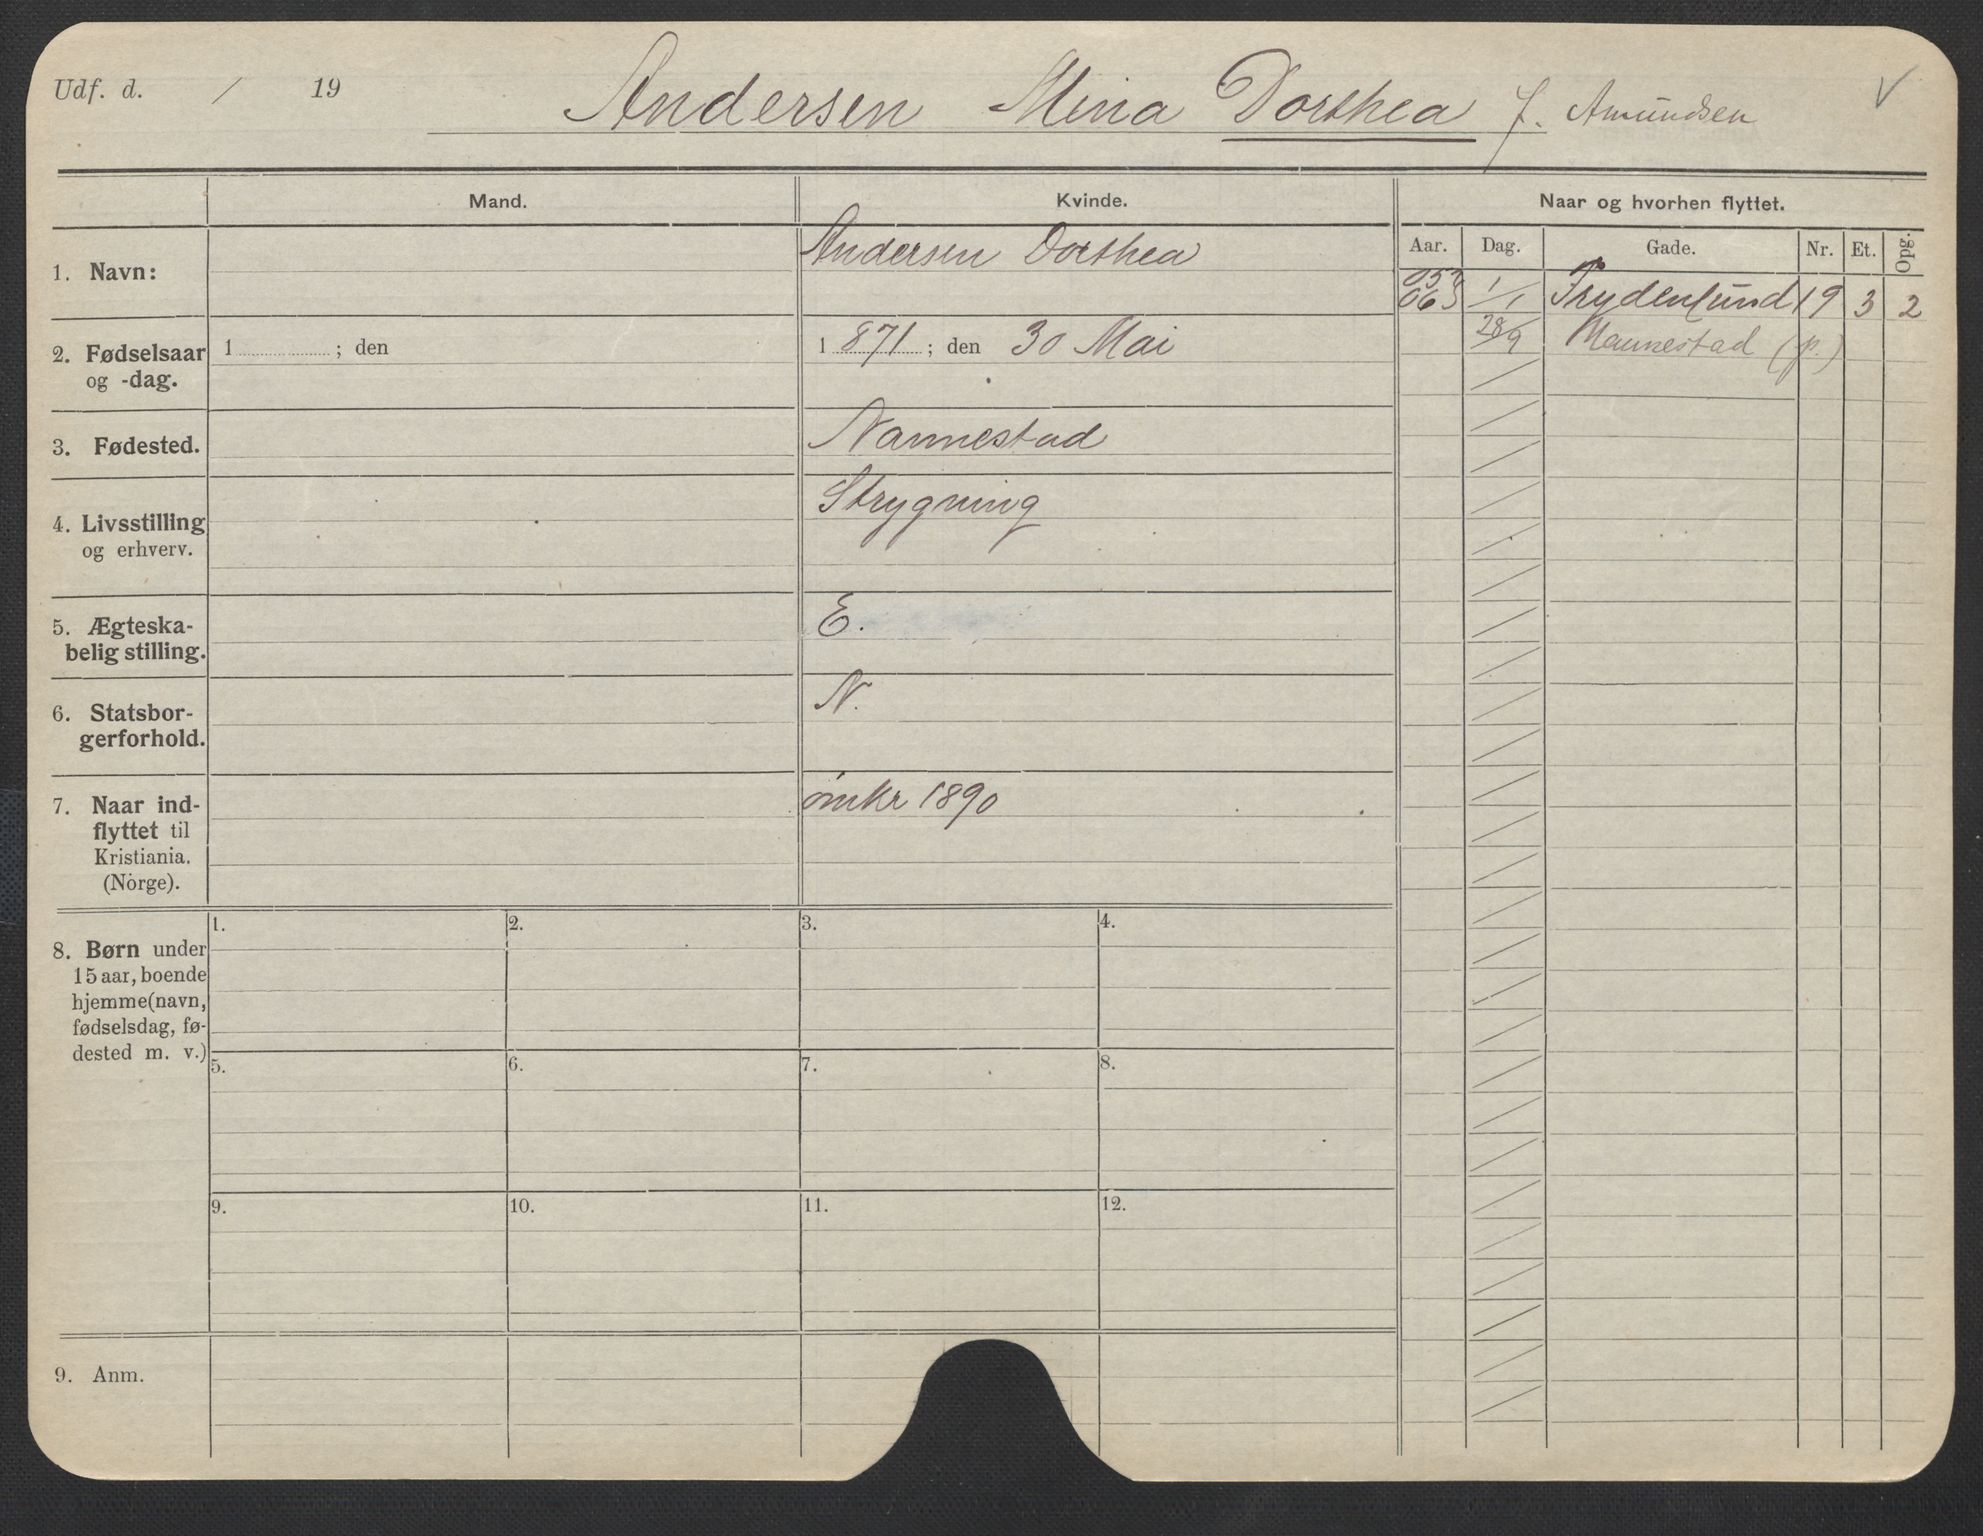 Udf. d. / 19
Andersen Mina Dorthea f. Amundsen
Mand. Kvinde. Naar og hvorhen flyttet.
Aar. Dag. Gade. Nr. Et. Opg.
1. Navn: Andersen Dorthea
05
06 1/1 Frydenlund 19 3 2
28/9 Nannestad (p.)
2. Fødselsaar 1 ; den 1 871 ; den 30 Mai
og -dag.
3. Fødested. Nannestad
4. Livsstilling Strygning
og erhverv.
5. Ægteska- E.
belig stilling.
6. Statsbor- N.
gerforhold.
7. Naar ind- omkr 1890
flyttet til
Kristiania.
(Norge).
1. 2. 3. 4.
8. Børn under
15 aar, boende
hjemme (navn,
fødselsdag, fø-
dested m. v.)
5. 6. 7. 8.
9. 10. 11. 12.
9. Anm.